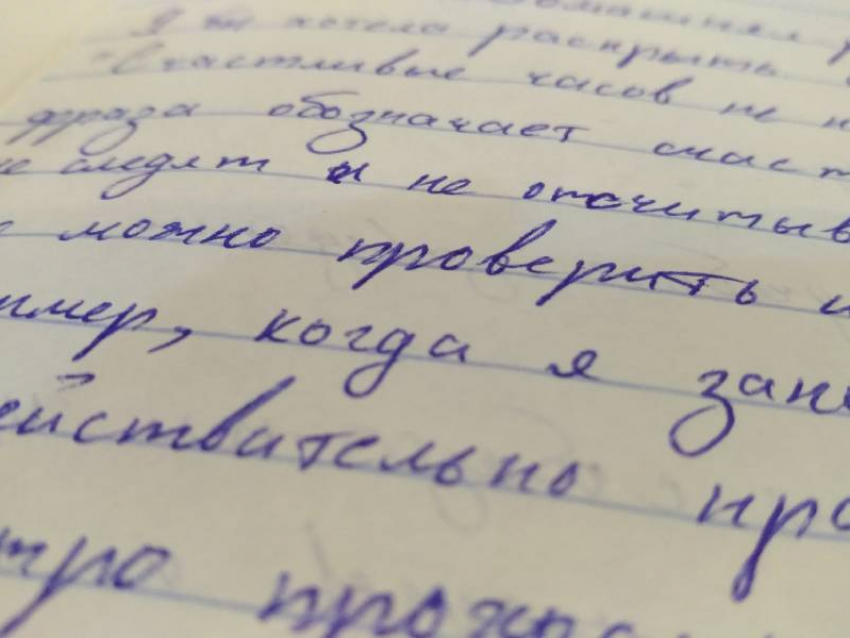 омашняя
Я ж хотела раскрыть
"Счастливые часов не н
фраза обозначает счаст
не следят и не отсчитыв
можно проверить и
имер, когда я зани
ействительно про
тро